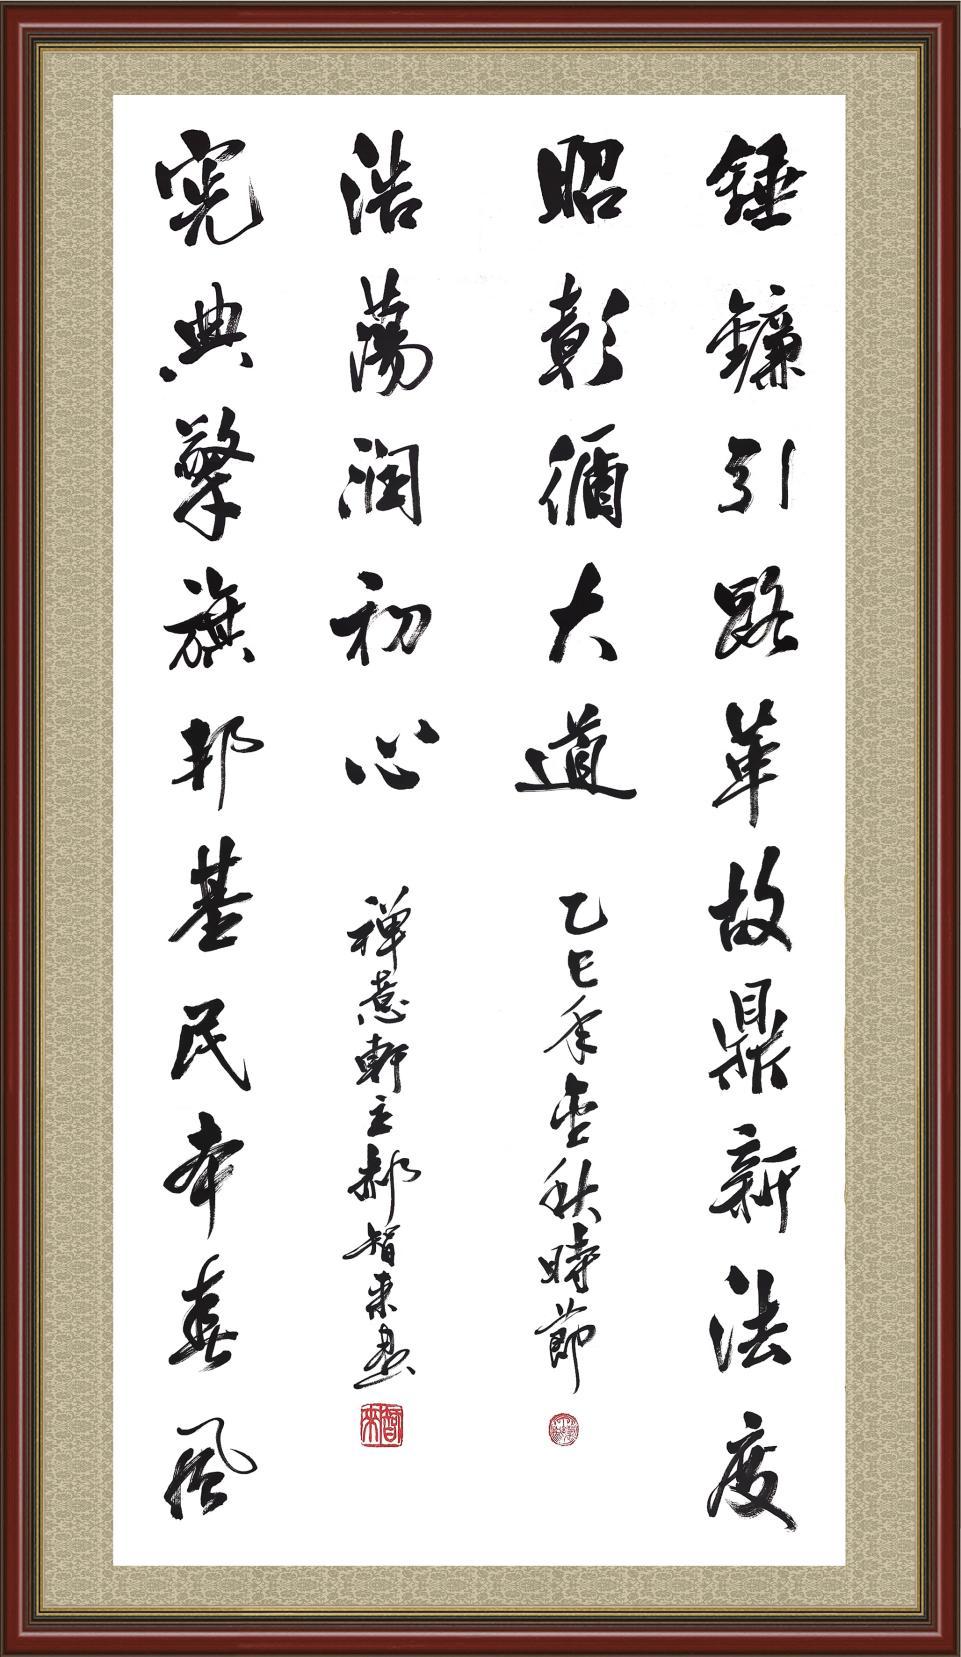 錘鐮引路革故鼎新法度
昭彰循大道
乙巳年金秋時節
宪典擎旗邦基民本春風
浩蕩润初心
禅意軒主郝智来書
智來